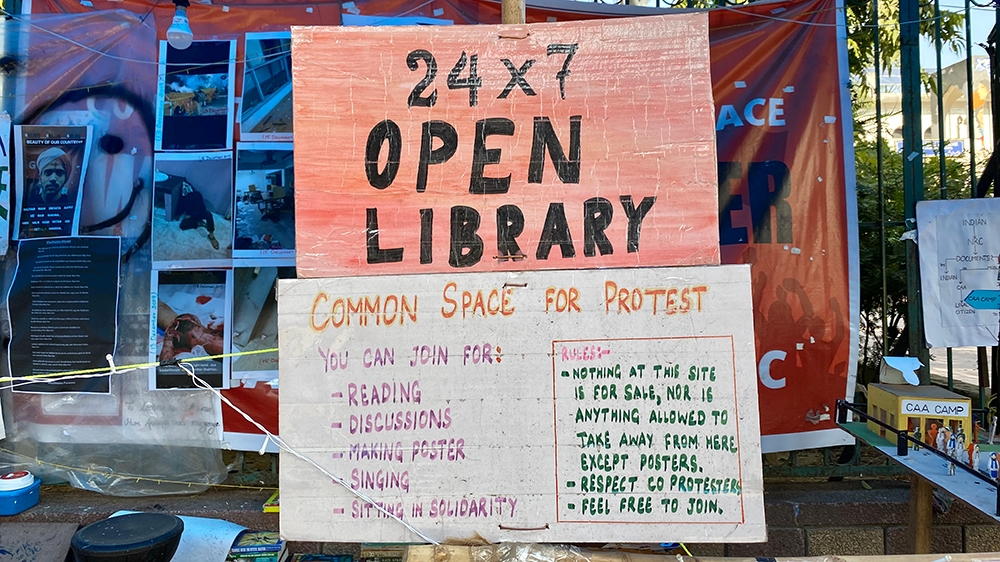 24x7
OPEN
LIBRARY
COMMON SPACE FOR PROTEST
YOU CAN JOIN FOR:
- READING
- DISCUSSIONS
- MAKING POSTER
- SINGING
- SITTING IN SOLIDARITY
RULES:-
- NOTHING AT THIS SITE
IS FOR SALE, NOR IS
ANYTHING ALLOWED TO
TAKE AWAY FROM HERE
EXCEPT POSTERS.
- RESPECT CO PROTESTERS
- FEEL FREE TO JOIN.
BEAUTY OF OUR COUNTRY
ACE
ER
C
INDIAN
NRC
DOCUMENTS
INDIAN
CAA
CAA CAMP
CITIZEN
CAA CAMP